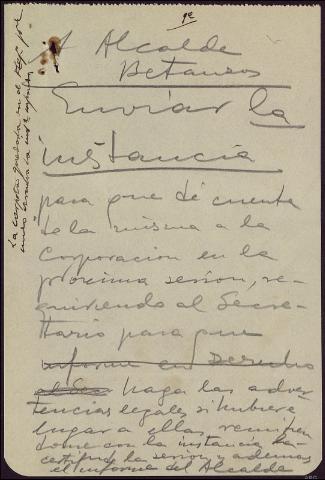 1º
A Alcalde
Betanzos
Enviar la
instancia
para que dé cuenta
de la misma a la
Corporación en la
próxima sesión, re-
quiriendo al Secre-
ttario para que
informe en Derecho
al Sec haga las adver
tencias legales si hubiera
lugar a ellas, remitien
dome con la instancia
certifdo la sesión y además
el informe del Alcalde
La carpeta quedada en el